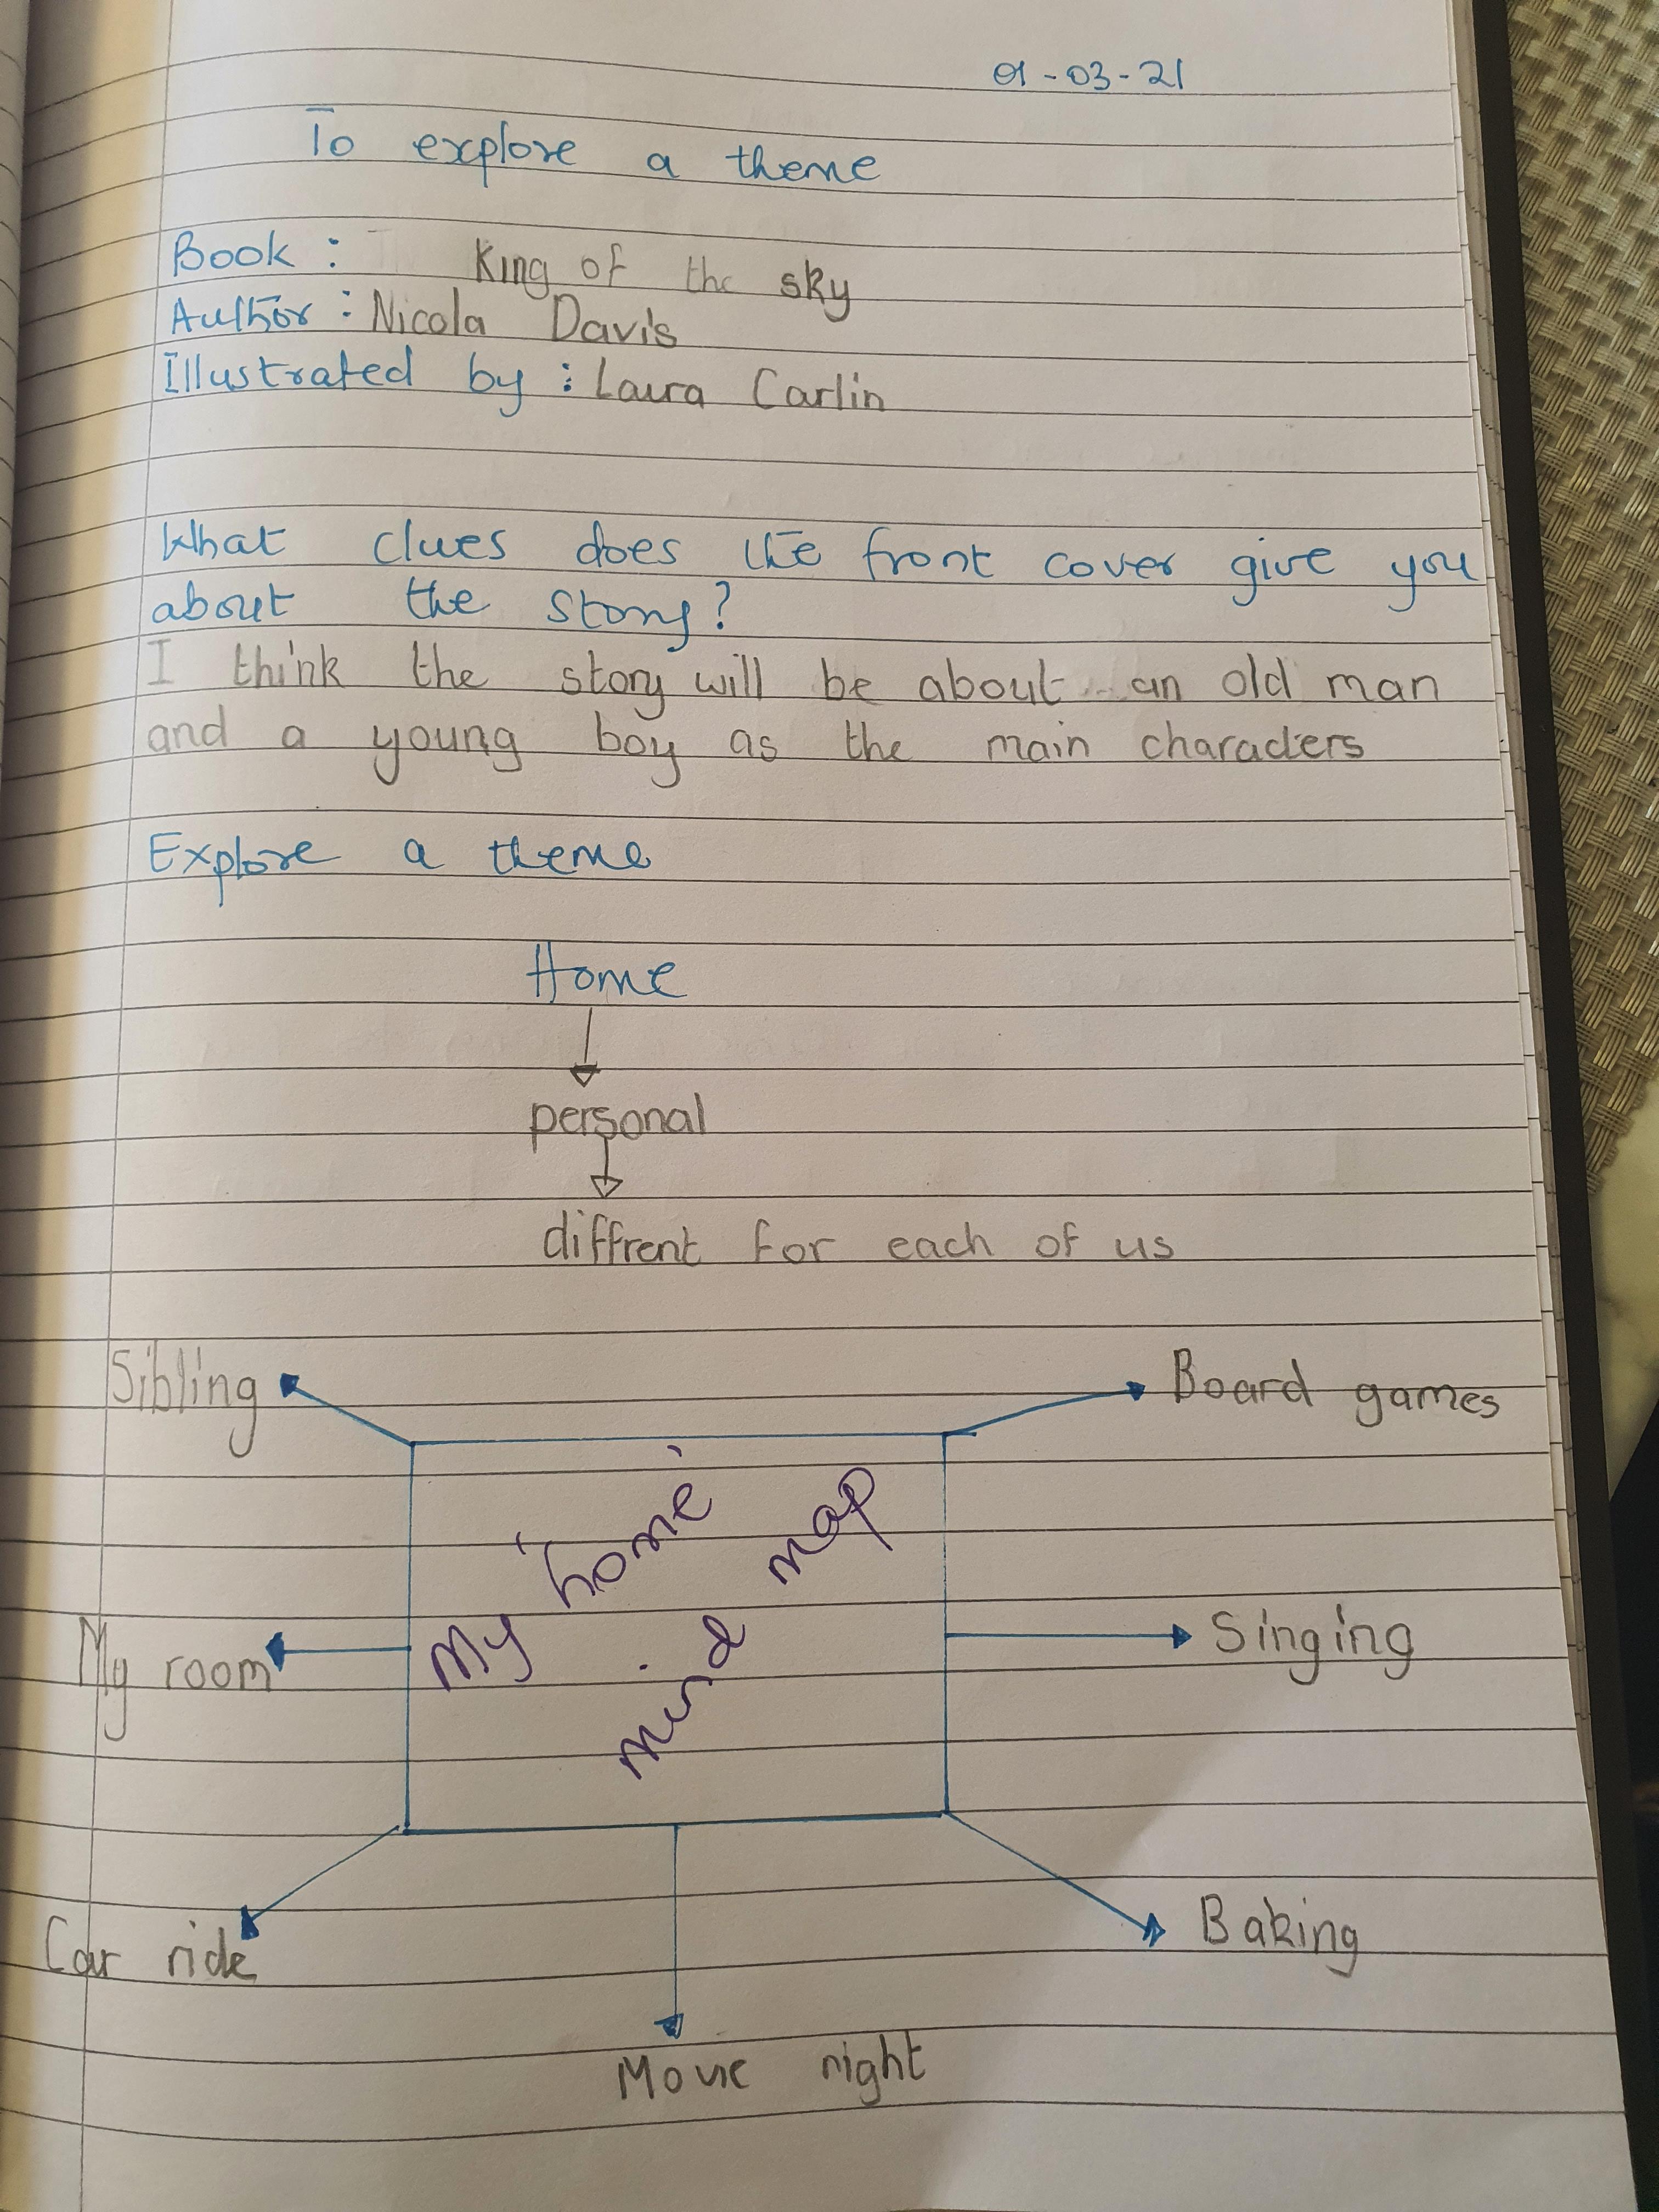 01-03-21
To explore a theme
Book : King of the sky
Author : Nicola Davis
Illustrated by : Laura Carlin
What clues does the front cover give you
about the story?
I think the story will be about an old man
and a young boy as the main characters
Explore a theme
Home
personal
diffrent for each of us
Sibling
Board games
My 'home'
mind map
My room
Singing
Car ride
Baking
Movie night